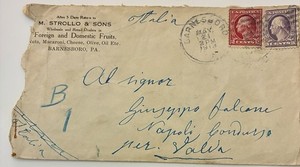 After 5 Days Return to
M. STROLLO & SONS
Wholesale and Retail Dealers in
Foreign and Domestic Fruits,
Macaroni, Cheese, Olive, Oil Etc.
BARNESBORO, PA.
Italia
BARNESBORO
PA.
B
1
Al signor
Giuseppe Falcone
Napoli
per